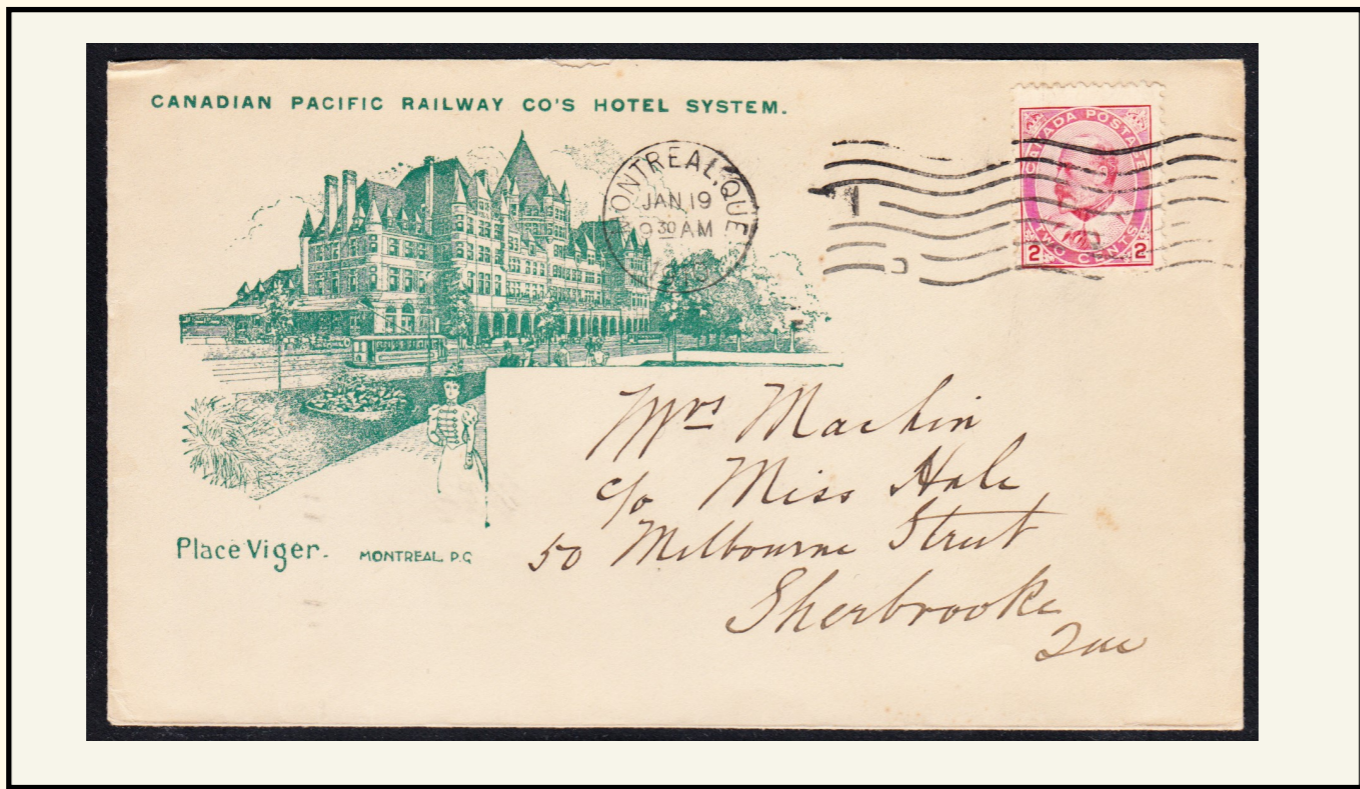 CANADIAN PACIFIC RAILWAY CO'S HOTEL SYSTEM.
MONTREAL, QUE
JAN 19
9 30 AM
CANADA POSTAGE
2 TWO CENTS 2
Place Viger. MONTREAL, P.Q
Mrs Machin
c/o Miss Hale
50 Melbourne Street
Sherbrooke
Que